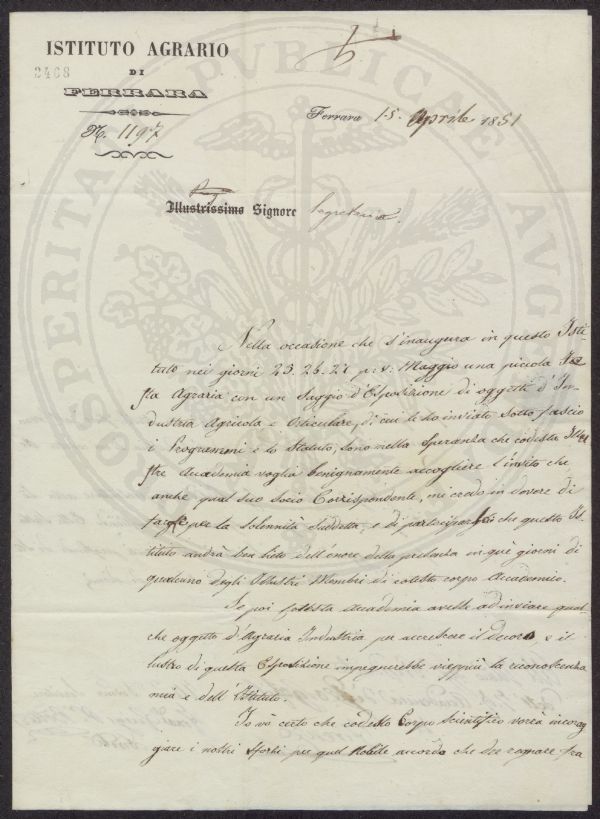 ISTITUTO AGRARIO
2468
DI
FERRARA
N. 1197
Ferrara 15. Aprile 1851
Illustrissimo Signore Segretario
PROSPERITAS PUBLICAE AUG
Nella occasione che s'inaugura in questo Isti-
tuto nei giorni 25. 26. 27 p. v. Maggio una piccola Fe-
sta Agraria con un Saggio d'Esposizione di oggetti d'In-
dustria Agricola e Orticulare, di cui le ho inviato sotto fascio
i Programmi e lo Statuto, sono nella speranza che codesta Illu
stre Accademia voglia benignamente accogliere l'invito che
anche qual suo Socio Corrispondente, mi credo in dovere di
farle per la solennità suddetta, e di partecipar che questo Is-
tituto andrà ben lieto dell'onore della presenza in quei giorni di
qualcuno degli Illustri Membri di cotesto corpo Accademico.
Se poi cotesta Accademia avesse ad inviare qual-
che oggetto d'Agraria Industria per accrescere il decoro, e il
lustro di questa Esposizione impegnerebbe vieppiù la riconoscenza
mia e dell'Istituto.
Io vò certo che codesto Corpo Scientifico vorrà incorag
giare i nostri sforzi per quel Nobile accordo che dee regnare fra